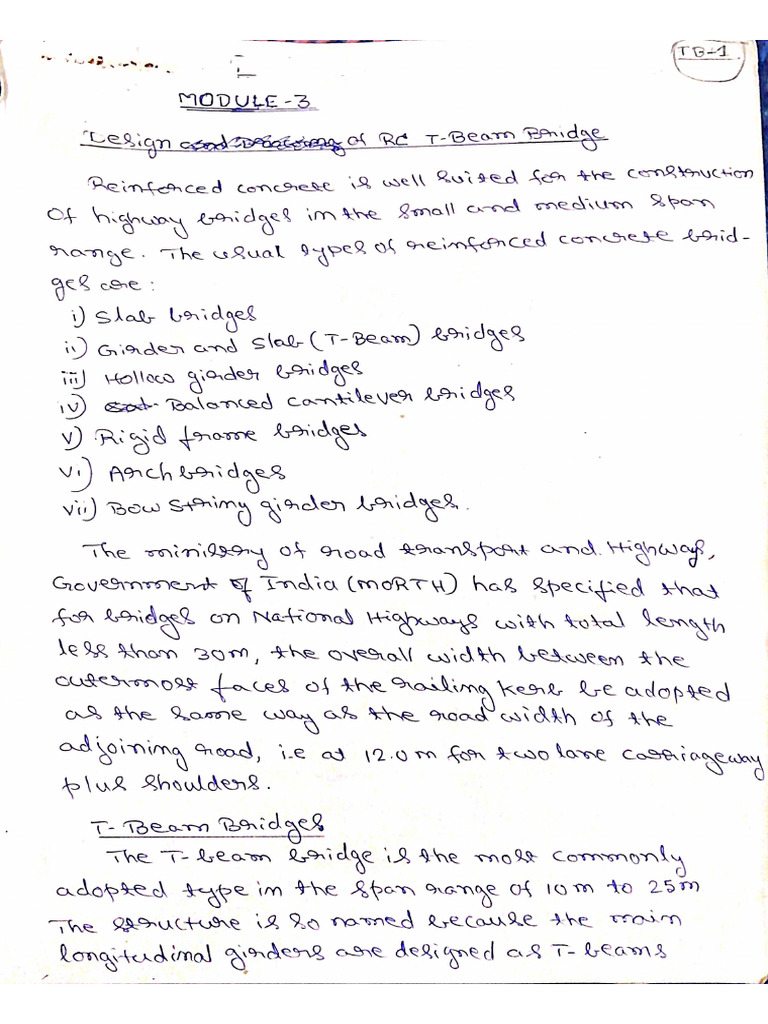 TB-1
MODULE-3
Design and Drawing of RC T-Beam Bridge
Reinforced concrete is well suited for the construction
of highway bridges in the small and medium span
range. The usual types of reinforced concrete brid-
ges are:
i) Slab bridges
ii) Girder and slab (T-Beam) bridges
iii) Hollow girder bridges
iv) Balanced cantilever bridges
v) Rigid frame bridges
vi) Arch bridges
vii) Bow string girder bridges.
The ministry of road transport and Highways,
Government of India (MORTH) has specified that
for bridges on National Highways with total length
less than 30m, the overall width between the
outermost faces of the railing kerb be adopted
as the same way as the road width of the
adjoining road, i.e at 12.0m for two lane carriageway
plus shoulders.
T-Beam Bridges
The T-beam bridge is the most commonly
adopted type in the span range of 10m to 25m
The structure is so named because the main
longitudinal girders are designed as T-beams